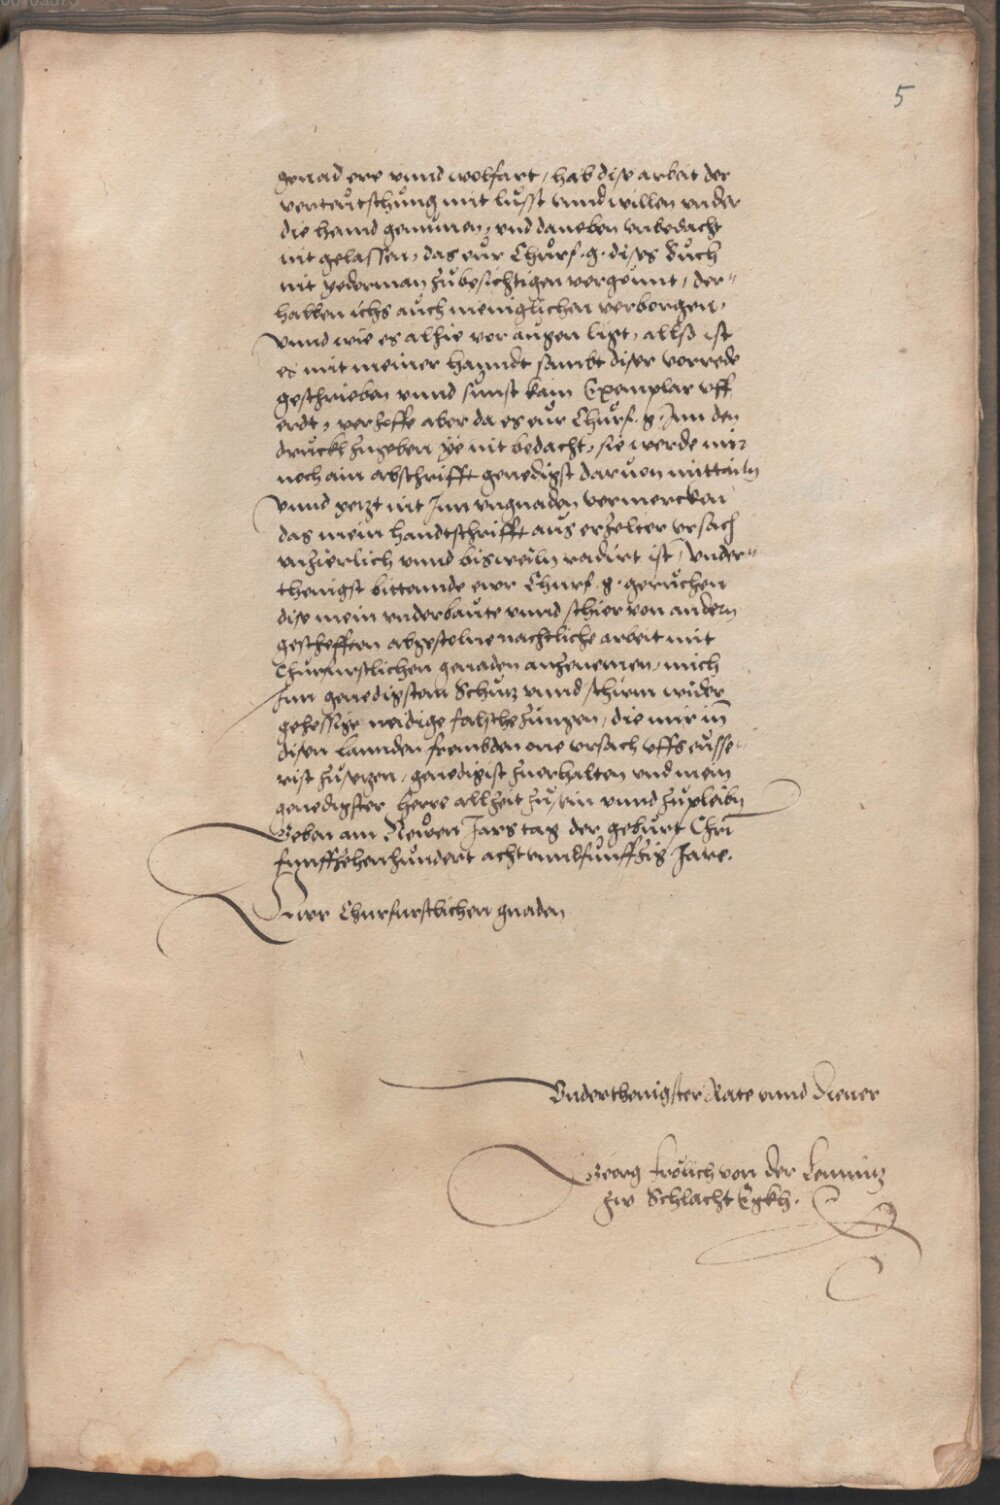 5
genad ere vnnd wolfart, hab dise arbait der
verteutschung mit lusst vnnd willen vnder
die hannd genumen, vnd daneben vnbedacht
nit gelassen, das eur Churf. g. dises Buch
nit yederman zubesichtigen vergönnt, der"
halben ichs auch meniglichen verborgen,
vnnd wie es alhie vor augen ligt, allso ist
es mit meiner hanndt sambt diser vorrede
geschrieben vnnd sunst kain Exemplar vff
erdt, verhoffe aber da es eur Churf. g. Inn den
druckh zugeben ye nit bedacht, sie werde mir
noch ain abschrifft genedigst daruon mittailn
vnnd yetzt nit Inn vngnaden vermercken
das mein handtschrifft aus erzelter vrsach
vnzierlich vnnd bisweiln radirt ist, Vnder"
thenigst bittennde ewr Churf. g. geruchen
dise mein vnderbaute vnnd schier von andern
gescheften abgestolne nachtliche arbeit mit
Churfurstlichen genaden anzenemen, mich
Inn genedigstem Schutz vnnd schirm wider
gehessige neidige falsche zungen, die mir in
disen Lannden frembden one vrsach vffs eusse"
rist zusetzen, genedigist zuerhalten vnd mein
genedigster Herre allzeit zu sein vnnd zupleibn
Geben am Newen Jars tag der geburt Chri
funffzehenhundert achtvnndfunffzig Jare.
Eurr Churfurstlichen gnaden
Vnderthenigster Rate vnnd Diener
Georg Frölich von der Lemnitz
zw Schlacht Egkh.